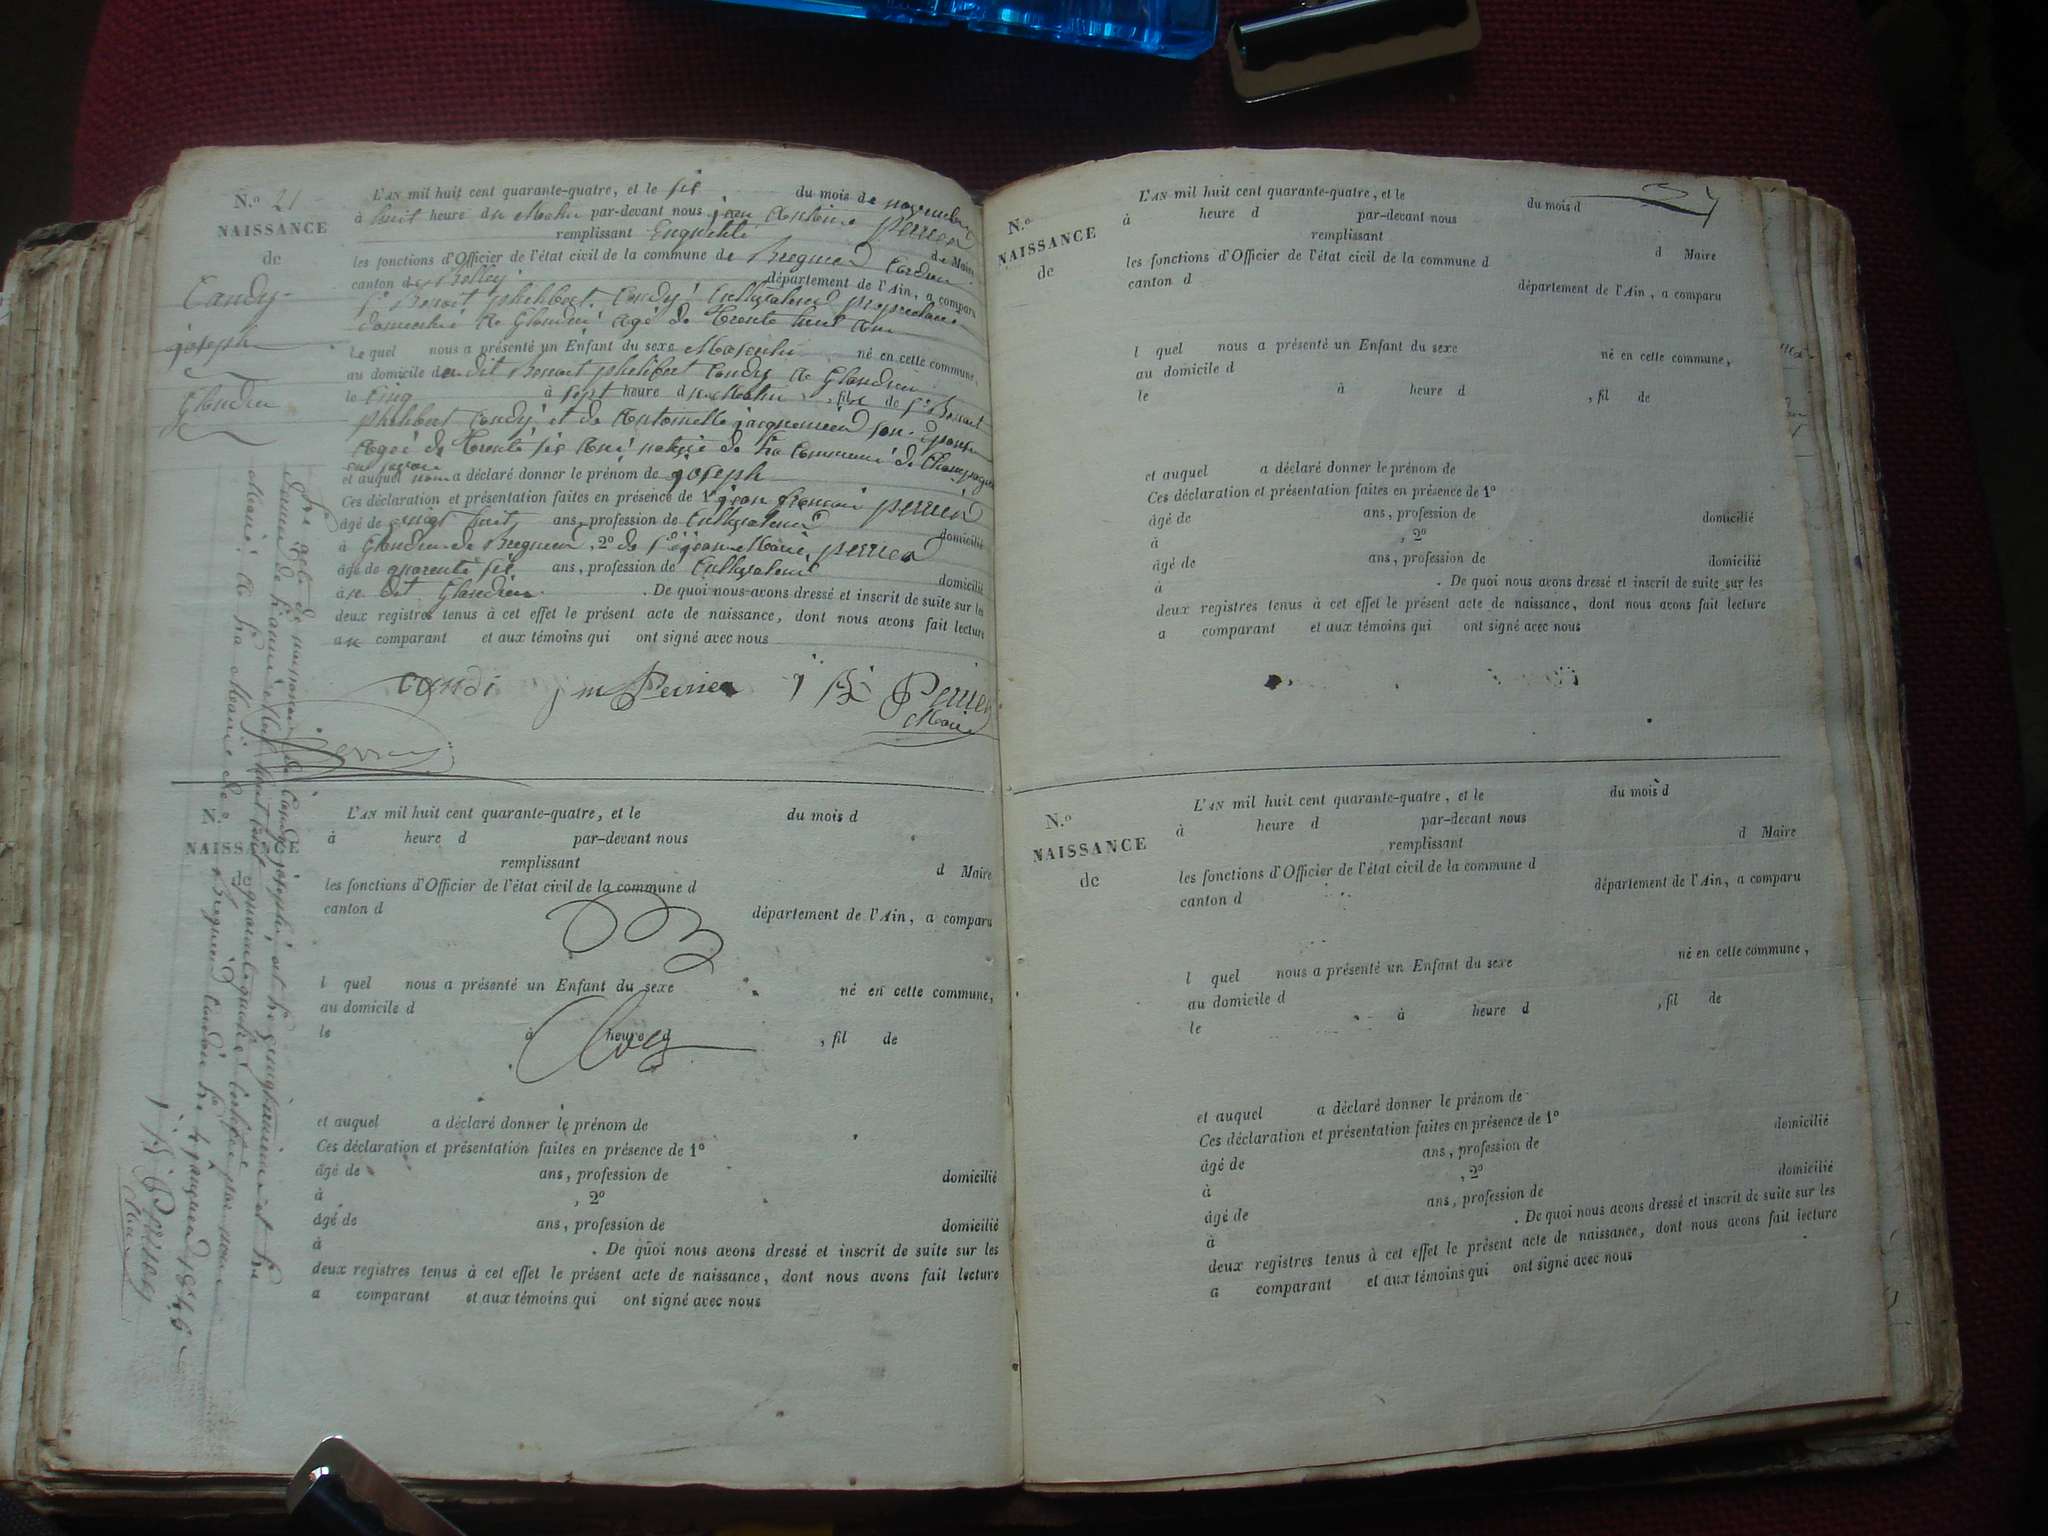 N.° 21
NAISSANCE
de
Candy
joseph
Glandieu
L'AN mil huit cent quarante-quatre, et le six du mois de novembre
à huit heure du Matin par-devant nous jean Antoine perrier
remplissant de Maire
les fonctions d'Officier de l'état civil de la commune de Bregnier Cordon
canton de Belley département de l'Ain, a comparu
Sr Benoit phelibert Candy Cultivateur propriétaire
domicilié de Glandieu agé de trente huit ans
Le quel nous a présenté un Enfant du sexe Masculin né en cette commune,
au domicile du dit Benoit phelibert Candy de Glandieu
le Cinq à sept heure du Matin, fils de Sr Benoit
phelibert Candy et de Antoinette son épouse
Agée de trente six ans native de la Commune de Champagne
et auquel nous a déclaré donner le prénom de joseph
Ces déclaration et présentation faites en présence de 1° jean françois perrier
âgé de vingt huit ans, profession de Cultivateur domicilié
à Glandieu de Bregnier, 2° de Sr jean Marie perrier
âgé de quarente six ans, profession de Cultivateur domicilié
à u dit Glandieu. De quoi nous avons dressé et inscrit de suite sur les
deux registres tenus à cet effet le présent acte de naissance, dont nous avons fait lecture
au comparant et aux témoins qui ont signé avec nous
candi j m Perrier Perrier
Maire
L'acte de naissance de Candy joseph, est le vingt unième et le
dernier de l'année Mil huit cent quarante quatre
à la Mairie de Bregnier Cordon le 1er janvier 1845
Perrier
Maire
N.°
NAISSANCE
de
L'AN mil huit cent quarante-quatre, et le du mois d
à heure d par-devant nous
remplissant d Maire
les fonctions d'Officier de l'état civil de la commune d
canton d département de l'Ain, a comparu
l quel nous a présenté un Enfant du sexe né en cette commune,
au domicile d
le à heure d , fil de
et auquel a déclaré donner le prénom de
Ces déclaration et présentation faites en présence de 1°
âgé de ans, profession de domicilié
à , 2°
âgé de ans, profession de domicilié
à . De quoi nous avons dressé et inscrit de suite sur les
deux registres tenus à cet effet le présent acte de naissance, dont nous avons fait lecture
a comparant et aux témoins qui ont signé avec nous
N.°
NAISSANCE
de
L'AN mil huit cent quarante-quatre, et le du mois d
à heure d par-devant nous
remplissant d Maire
les fonctions d'Officier de l'état civil de la commune d
canton d département de l'Ain, a comparu
l quel nous a présenté un Enfant du sexe né en cette commune,
au domicile d
le à heure d , fil de
et auquel a déclaré donner le prénom de
Ces déclaration et présentation faites en présence de 1°
âgé de ans, profession de domicilié
à , 2°
âgé de ans, profession de domicilié
à . De quoi nous avons dressé et inscrit de suite sur les
deux registres tenus à cet effet le présent acte de naissance, dont nous avons fait lecture
a comparant et aux témoins qui ont signé avec nous
N.°
NAISSANCE
de
L'AN mil huit cent quarante-quatre, et le du mois d
à heure d par-devant nous
remplissant d Maire
les fonctions d'Officier de l'état civil de la commune d
canton d département de l'Ain, a comparu
l quel nous a présenté un Enfant du sexe né en cette commune,
au domicile d
le à heure d , fil de
et auquel a déclaré donner le prénom de
Ces déclaration et présentation faites en présence de 1°
âgé de ans, profession de domicilié
à , 2°
âgé de ans, profession de domicilié
à . De quoi nous avons dressé et inscrit de suite sur les
deux registres tenus à cet effet le présent acte de naissance, dont nous avons fait lecture
a comparant et aux témoins qui ont signé avec nous